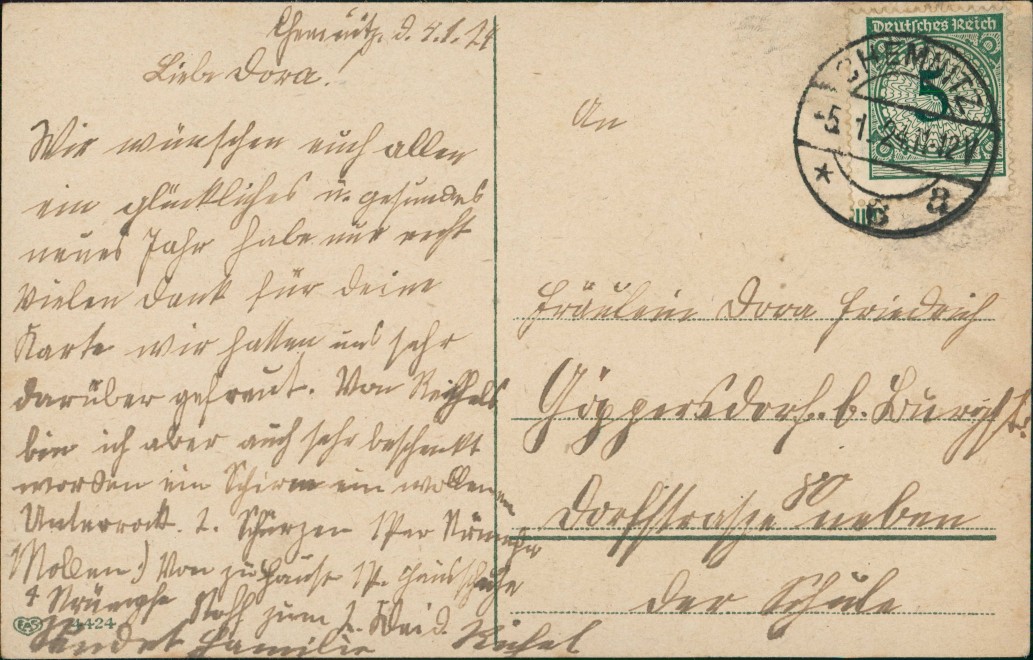 Chemnitz. d. 4.1.24
Liebe Dora!
Wir wünschen euch allen
ein glückliches u. gesundes
neues Jahr habe nur recht
Vielen Dank für deine
Karte wir hatten uns sehr
darüber gefreut. Von Reichels
bin ich aber auch sehr beschenkt
worden ein Schirm ein wollenen
Unterrock. 2. Schürzen 1 Par Strümpfe
Wollen) Von zu Hause 1 P. Hausschuhe
4 Strümpfe Stoff zum 1. Kleid.
Sendet Familie Richel
EAS 4424
Deutsches Reich
5
CHEMNITZ
-5. 1. 24. 11-12 V
* 8 a
An
Fräulein Dora Friedrich
Göppersdorf. b. Burgst.
Dorfstraße 80 neben
der Schule